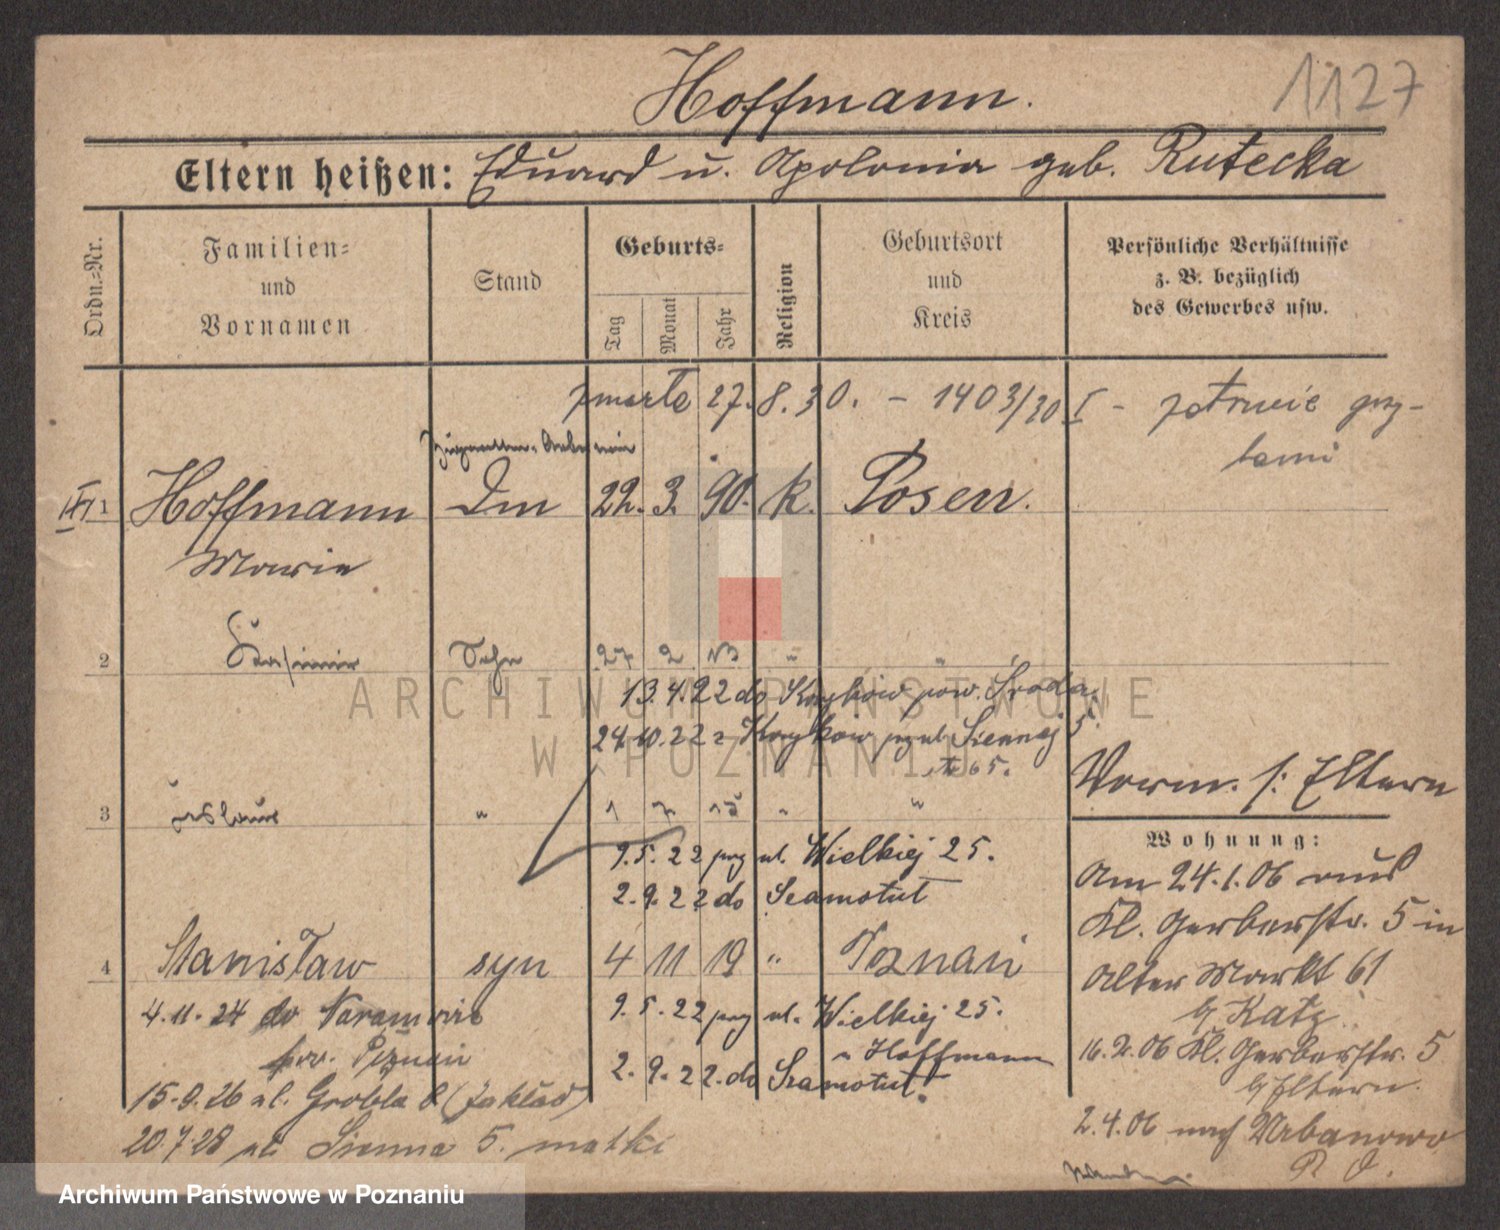 Hoffmann.
1127
Eltern heißen: Eduard u. Apolonia geb. Rutecka
Ordn.-Nr.
Familien-
und
Vornamen
Stand
Geburts-
Tag
Monat
Jahr
Religion
Geburtsort
und
Kreis
Persönliche Verhältnisse
z. B. bezüglich
des Gewerbes usw.
zmarła 27.8.30. - 1403/30 I - zatrucie grzy-
bami
1 Hoffmann 22. 3. 90. k. Posen.
Marie
2 Kasimir Sohn 27 2 13 " "
13.4.22 do pow. Środa.
24.10.22 z ul. Siennej 5.
65.
Vorm. s: Eltern
3 " 1 7 15 " "
Wohnung:
9.5.22 przy ul. Wielkiej 25.
2.9.22 do Szamotuł
Am 24.1.06 aus
Kl. Gerberstr. 5 in
4 Stanisław syn 4 11 19 " Poznań
Alter Markt 61
b/ Katz
4.11.24 do Naramowic
pow. Poznań
9.5.22 przy ul. Wielkiej 25.
u Hoffmann
2.9.22. do Szamotuł.
16.2.06 Kl. Gerberstr. 5
b/ Eltern.
15.9.26 ul. Grobla (Zakład)
20.7.28 ul. Sienna 5. matki
2.4.06 nach Urbanowo
ARCHIWUM PAŃSTWOWE
W POZNANIU
Archiwum Państwowe w Poznaniu